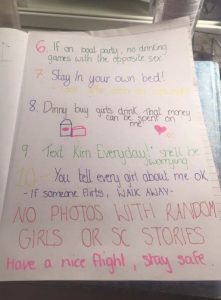 6. If on boat party, no drinking
games with the opposite sex
7. Stay in your own bed!
8. Dinny buy girls drink. That money
can be spent on
me
9. Text Kim Everyday, she'll be
worrying
10. You tell every girl about me ok
- If someone flirts, WALK AWAY-
NO PHOTOS WITH RANDOM
GIRLS OR SC STORIES
Have a nice flight, stay safe